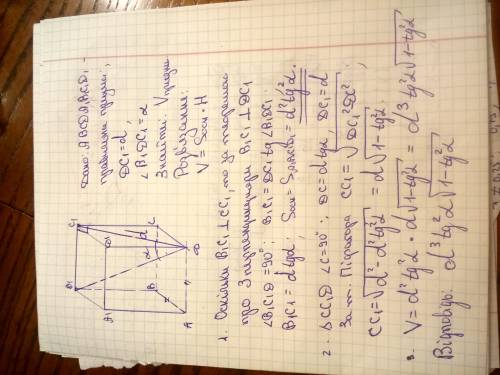 Дано: ABCDA₁B₁C₁D₁ -
правильна призма;
DC₁ = d,
∠B₁DC₁ = α
Знайти: Vпризми
Розв'язання:
V = Sосн · H
C₁
D₁
B₁
A₁
d
α
C
B
D
A
1. Оскільки B₁C₁ ⊥ CC₁, то за теоремою
про 3 перпендикуляри B₁C₁ ⊥ DC₁
∠B₁C₁D = 90°; B₁C₁ = DC₁ tg ∠B₁DC₁
B₁C₁ = d tgα; Sосн = d²tg²α.
2. △CC₁D ∠C = 90°; DC = d tgα, DC₁ = d
За т. Піфагора CC₁ = √DC₁² - DC²;
CC₁ = √d² - d²tg²α = d√1 - tg²α.
3. V = d²tg²α · d√1 - tg²α = d³tg²α√1 - tg²α
Відповідь: d³tg²α√1 - tg²α